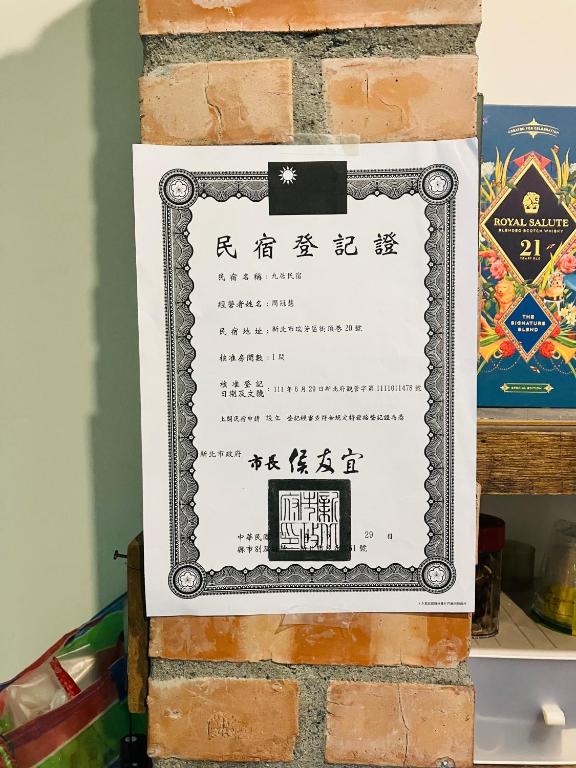 民宿登記證
民宿名稱：九茴民宿
經營者姓名：周冠慧
民宿地址：新北市瑞芳區街頂巷20號
核准房間數：1間
核准登記
日期及文號：111年6月29日新北府觀管字第1111011478號
上開民宿申請 設立 登記經審查符合規定特發給登記證為憑
新北市政府 市長 侯友宜
新北市政府印
中華民國 29 日
縣市別及 51號
ROYAL SALUTE
BLENDED SCOTCH WHISKY
21
YEARS OLD
THE
SIGNATURE
BLEND
SPECIAL EDITION